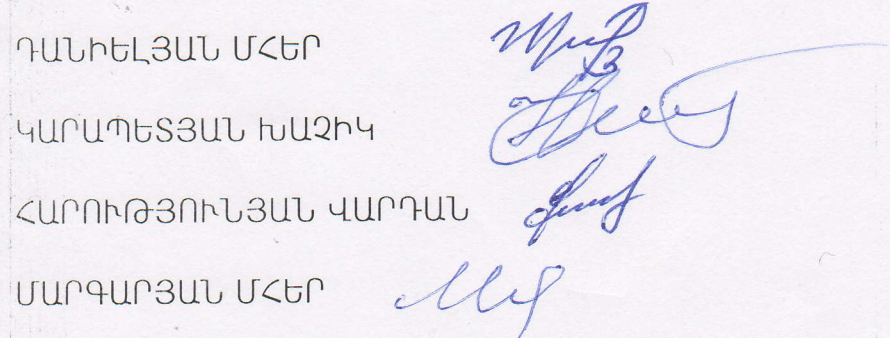 ԴԱՆԻԵԼՅԱՆ ՄՀԵՐ
ԿԱՐԱՊԵՏՅԱՆ ԽԱՉԻԿ
ՀԱՐՈՒԹՅՈՒՆՅԱՆ ՎԱՐԴԱՆ
ՄԱՐԳԱՐՅԱՆ ՄՀԵՐ